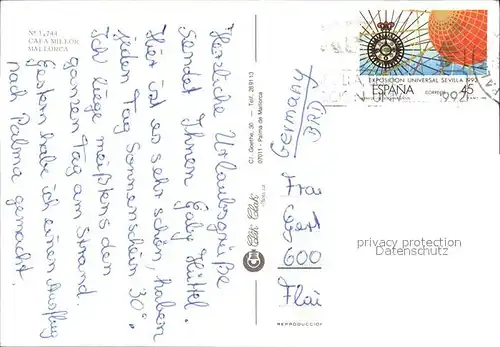 Nº 1.744
CALA MILLOR
MALLORCA
Herzliche Urlaubsgrüße
Sendet Ihnen Gaby Hüttel.
Hier ist es sehr schön, haben
jeden Tag Sonnenschein 30°.
Ich liege meistens den
ganzen Tag am Strand.
Gestern habe ich einen Ausflug
nach Palma gemacht.
Cl. Goethe, 30 - Telf. 289113
07011 - Palma de Mallorca
Clik Clak
REPRODUCCION
EXPOSICION UNIVERSAL SEVILLA 1992
ESPAÑA
CORREOS
45
1992
Germany
BRD
Frau
600
privacy protection
Datenschutz